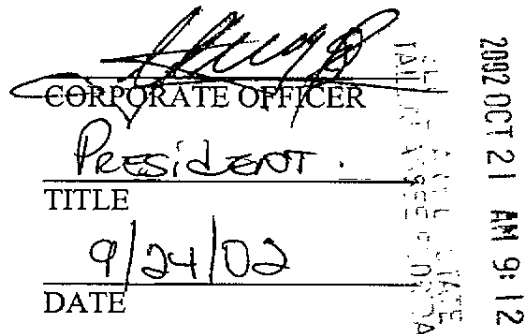 CORPORATE OFFICER
PRESIDENT.
TITLE
9/24/02
DATE
2002 OCT 21 AM 9:12